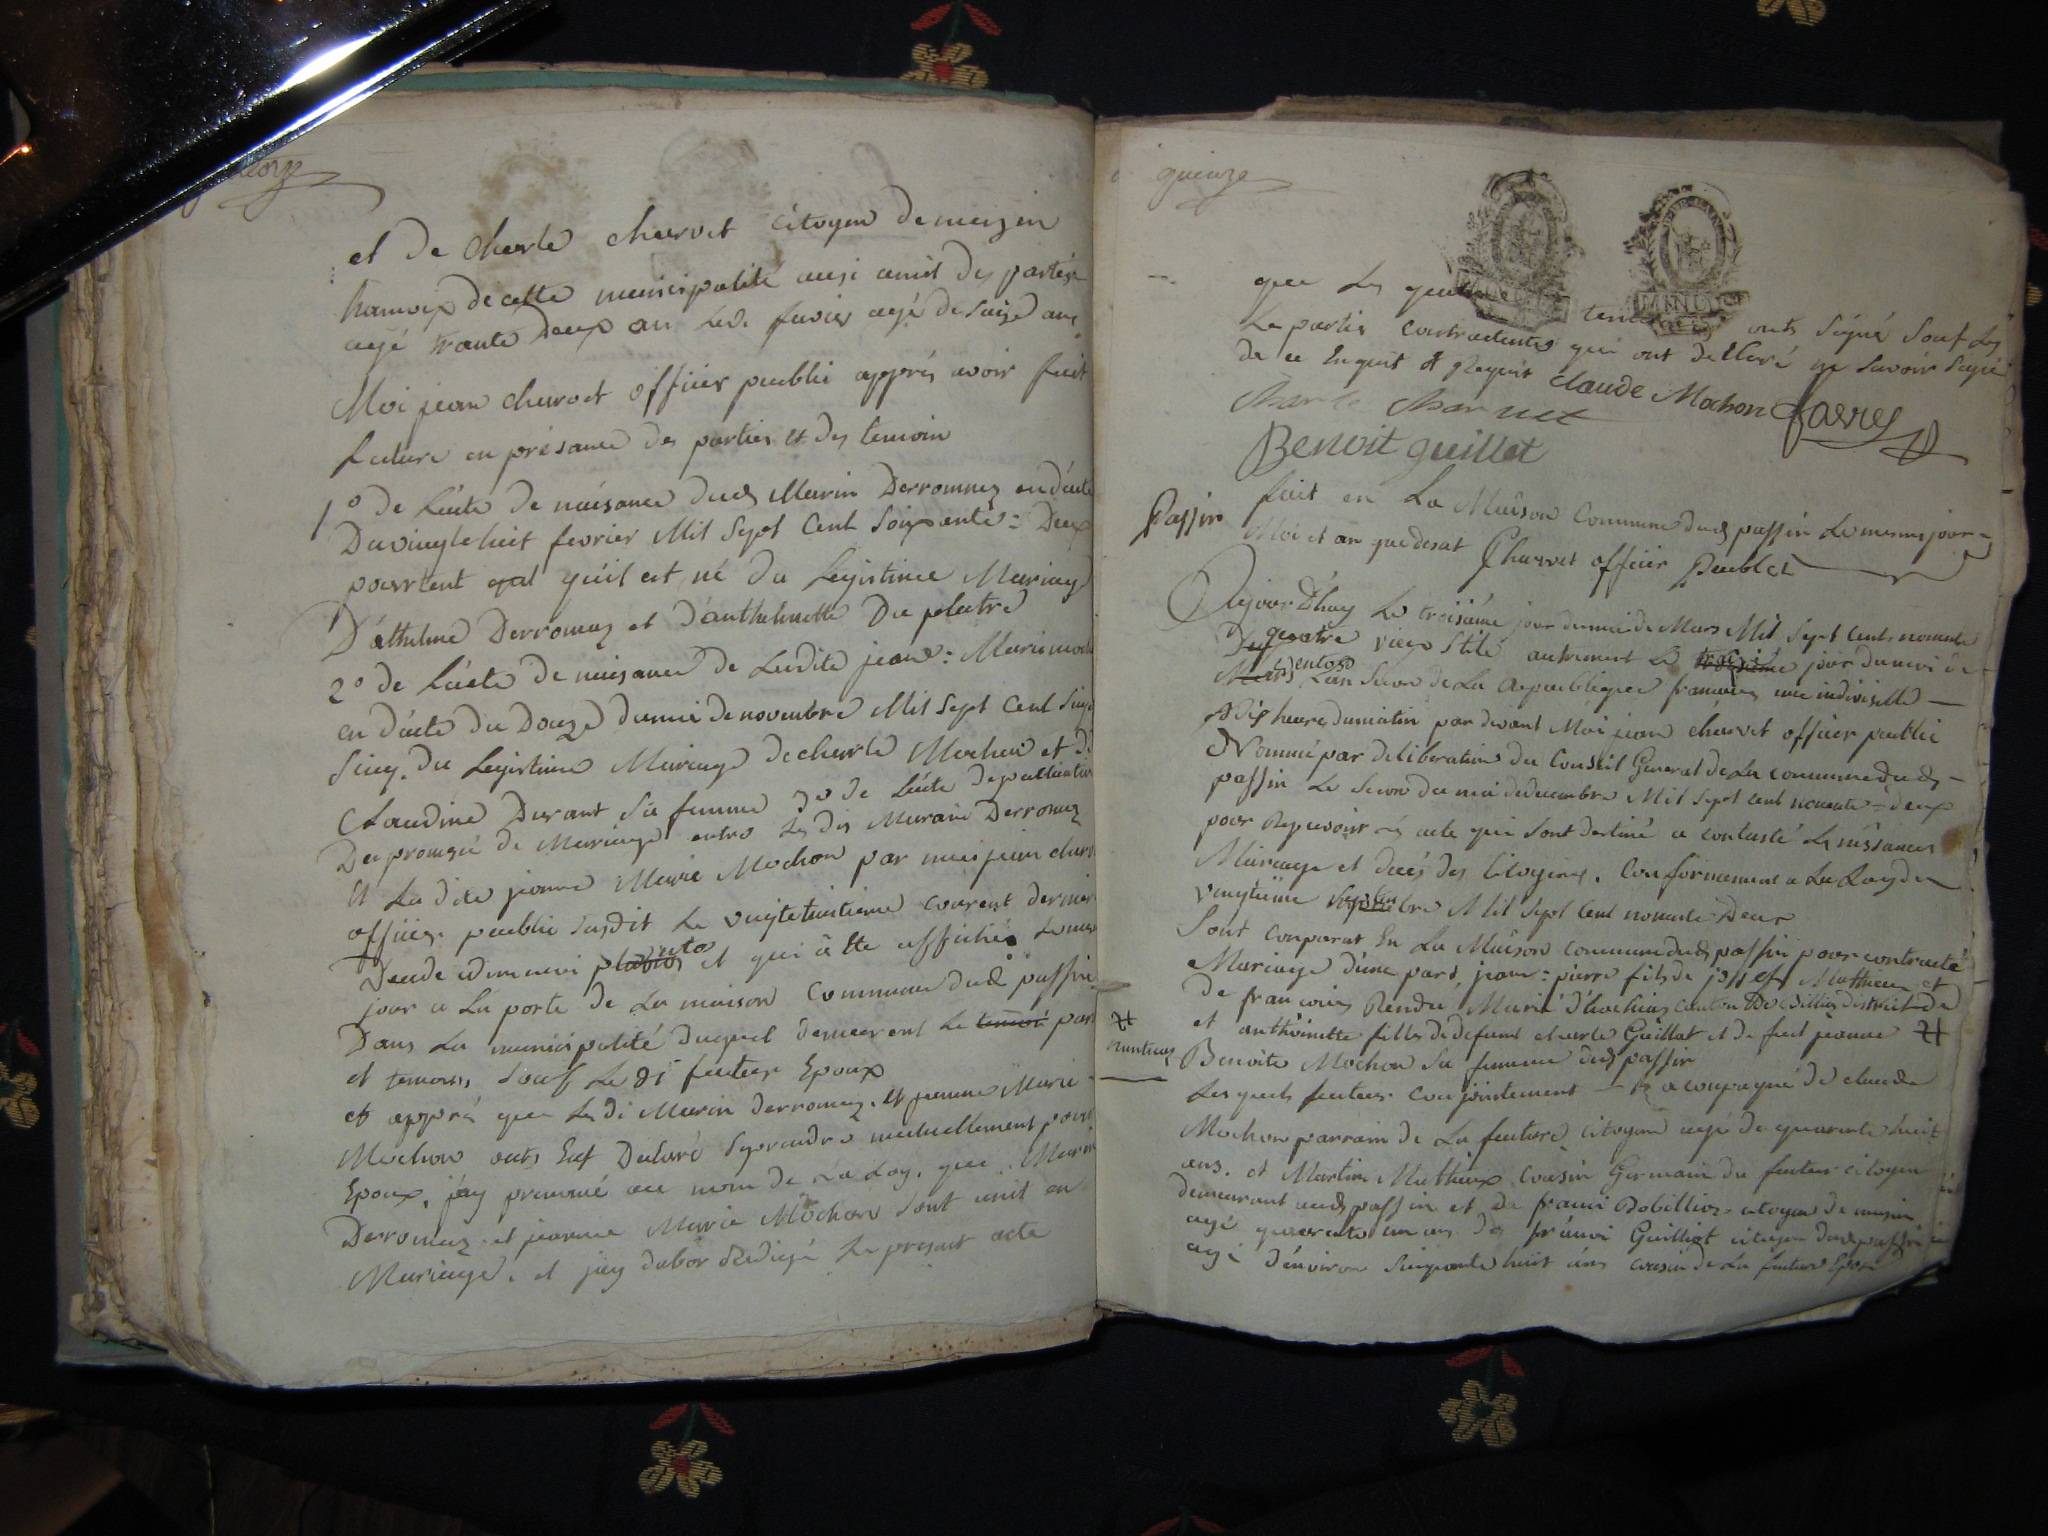 et de charle charvet citoyen de meizin
hameux de cette municipalité ausi amit des parties
agé trante deux an
Moi jean charvet officier public apprés avoir fait
lecture en présance des parties et des temoin
1º de l'acte de naisance dud Marin Derromuz en date
Du vingt huit fevrier Mil Sept Cent Soixante = Deux
pourtent qu'il est né du Legistime Mariag
D'athelme Derromuz et d'anthelmette Du platre
2º de l'acte de naisance de Ladite jeane = Marie moch
en d'acte du Douze du moi de novembre Mil Sept Cent Soix
Sincq. du Legistime Mariage de charle Mochon et d
Claudine Durant Sa femme 3º de l'acte de publication
De promesse de Mariage entre Ledis Marain Derromuz
et La dite jeanne Marie Mochon par moi jean charv
officier public Susdit Le vingt huitieme courent dernier
et qui a ette affiché
jour a La porte de La maison Commune dud passin
Dans La municipalité duquel demeurent Le temoi par
et temoins Souf Le di futeur Epoux
et apprés que Ledi Marin derromuz. et jeanne Marie
Mochon outs Eut Declaré Sprendre mutuellement pour
Epoux, j'ay prononcé au nom de La Loy, que Marin
Derromuz et jeanne Marie Mochon Sont unit en
Mariage. et jay dabor Redigé Le present acte
quinze
que Les onts Signé Souf Les
Le partis contractentes qui ont declaré ne Savoir Signé
de ce Enquit et Requit Claude Mochon favre
Charle Charvet
Benoit guillot
fait en La Maison Commune dud passin Le memes jour
Moi et an que desut Charvet officier Publict
Passin
Aujour D'huy Le troisiéme jour du moi de Mars Mil Sept Cents nonente
quatre vieux Stile autrement Le jour du moi de
ventose L'an Secon de La Republique francaise une indivisille
A dix heure du matin par devant Moi jean charvet officier public
Nommé par deliberation du Conseil General de La commune dud
passin Le Secon du moi de decembre Mil Sept Cent nonente = deux
pour Repcevoir cés acte qui Sont destiné a contasté Les naissances
Mariage et decés des Citoyins. Conformement a La Loy du
vingtieme Septenbre Mil Sept Cent nonente Deux
Sont conparut En La Maison commune dud passin pour contracté
Mariage d'une part jean = pierre fils de joseff Mathieux et
de francoise Rendu Marié d'hochias canton De Seillion district De
et anthoinette fille de defunt charle Guillot et de feut jeanne #
# nanteux Benoite Mochon Sa femme dud passin
Les quels futeur conjointement acompagné de claude
Mochon parrain de La future citoyen agé de quarente huit
ans. et Martin Mathieux cousin Germain du futeur citoyen
demeurant aud passin et de francoi Bobillion citoyen de meisin
agé quarente un ans de francoi Guilliot citoyen dud passin
agé d'environ Sinquante huit ans cousin de La future Epou